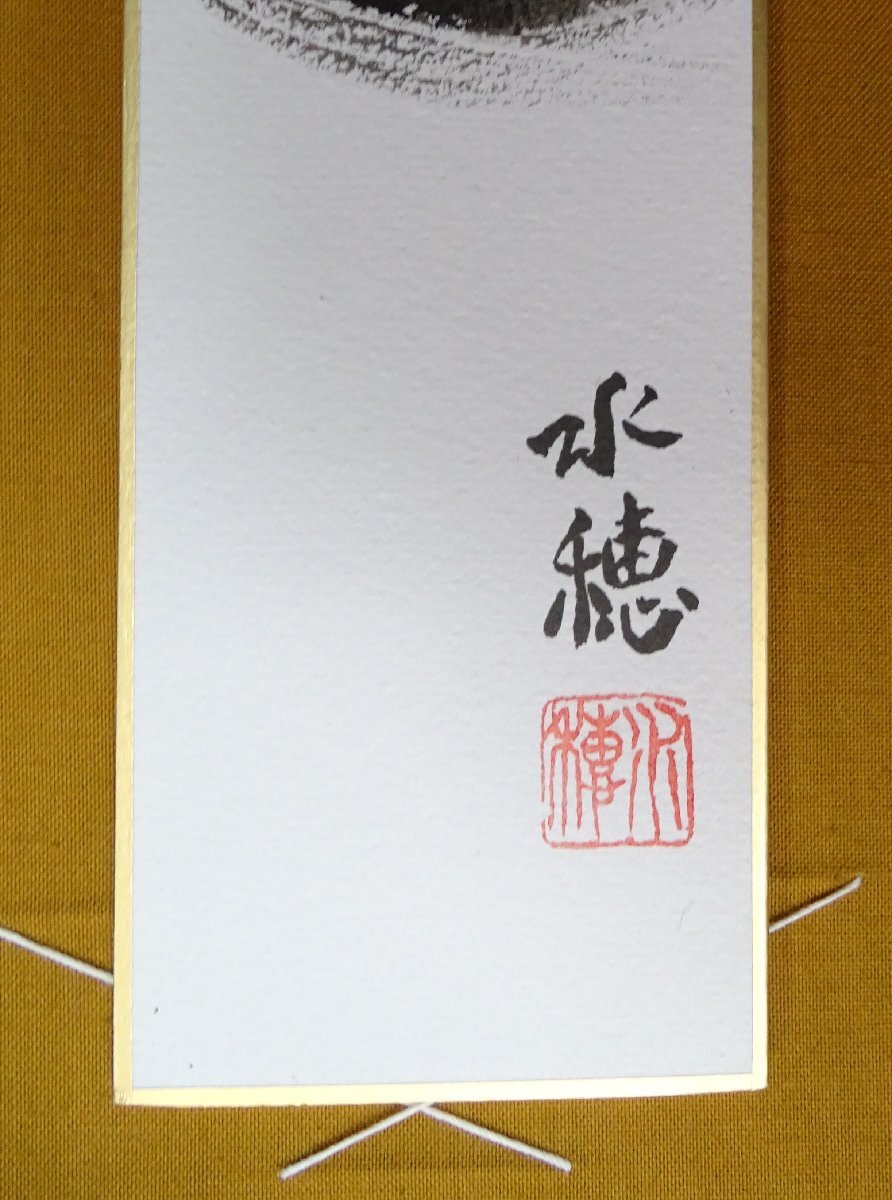 水穂
水穂